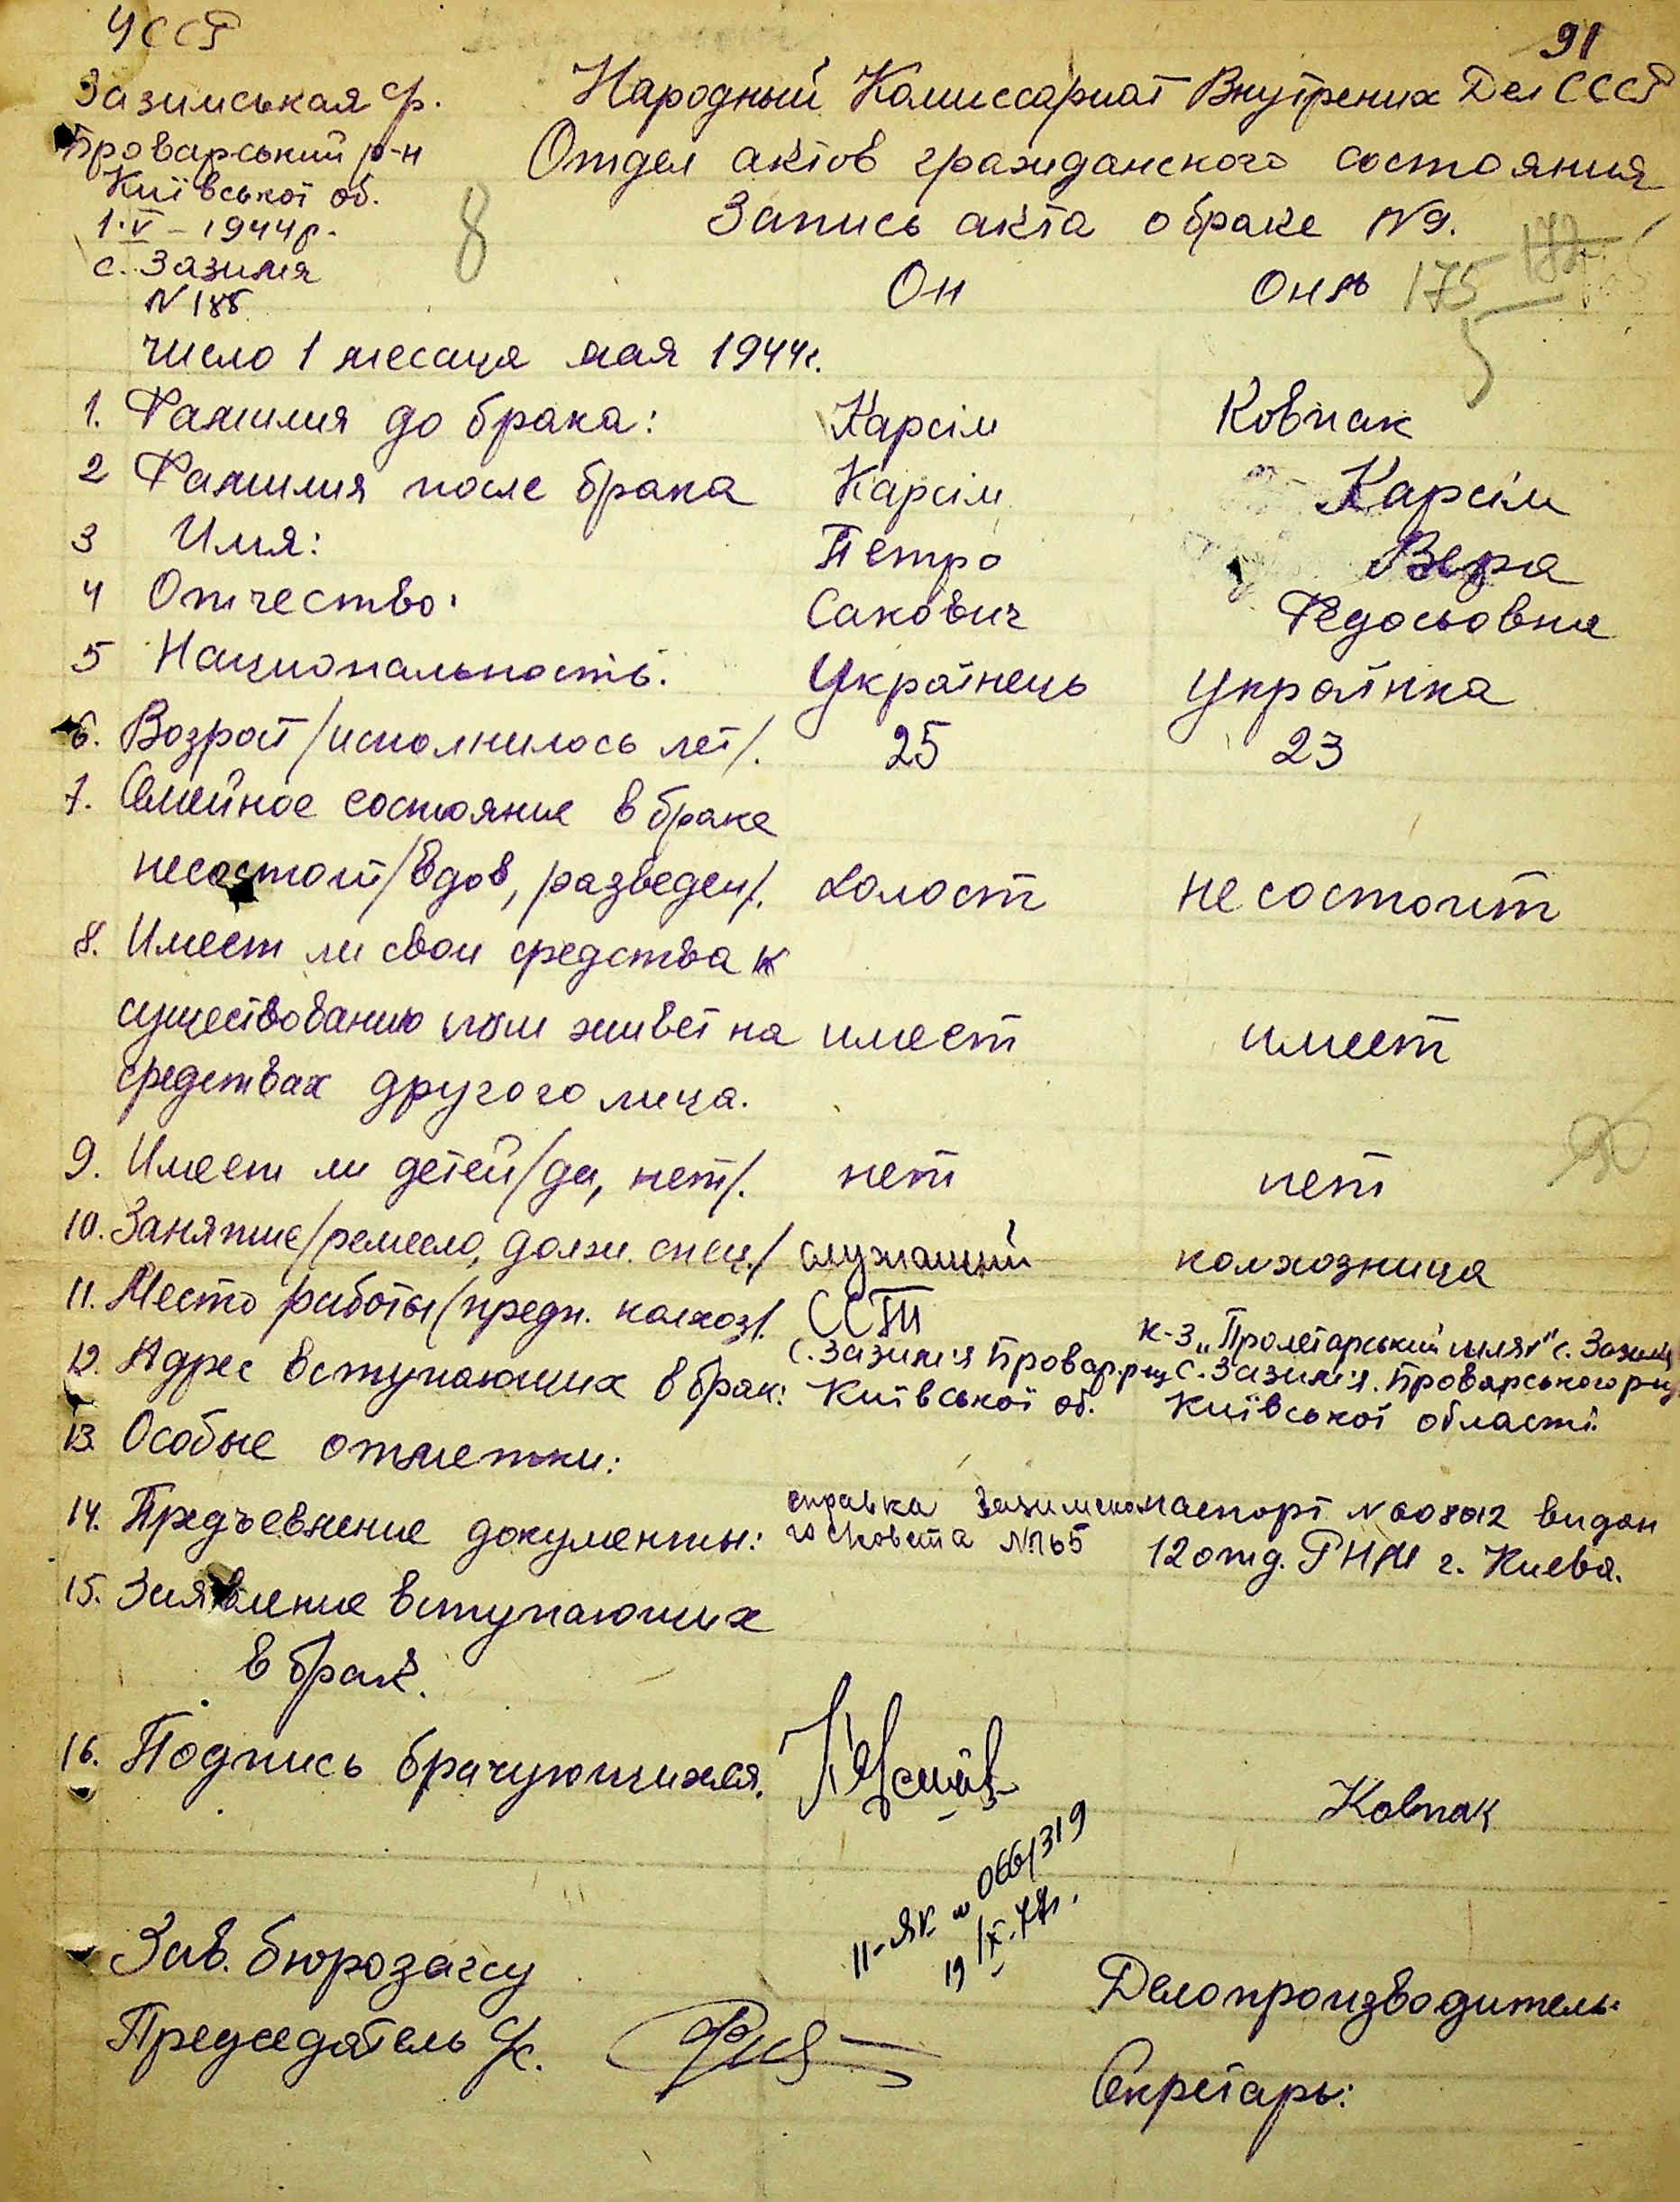 УССР
91
Зазимськая ср.
Броварський р-н
Київської об.
1·V – 1944р.
с. Зазимя
N 186
8
Народный Комиссариат Внутрених Дел СССР
Отдел актов гражданского состояния
Запись акта о браке N9.
Он Она 175
число 1 месяца мая 1944г.
1. Фамилия до брака: Карсім Ковпак
2 Фамилия после брака Карсім Карсім
3 Имя: Петро Вера
4 Отчество: Сакович Федосьовна
5 Национальность. Українець Українка
6. Возраст /исполнилось лет/. 25 23
7. Семейное состояние в браке
несостоит/вдов, /разведен/. холост не состоит
8. Имеет ли свои средства к
существованию или живет на имеет имеет
средствах другого лица.
9. Имеет ли детей/да, нет/. нет нет
10. Занятие/ремесло, должн. спец./ служащий колхозница
11. Место работы/предп. колхоз/. к-з „Пролетарський шлях" с. Зазимя
12. Адрес вступающих в брак: с. Зазим'я Бровар. р-ну Київської об. с. Зазим'я. Броварського р-ну
Київської області.
13. Особые отметки:
14. Предъевнение документы: справка Зазимско паспорт N 008012 видан
го с/совета N 165 12 отд. РНМ г. Киева.
15. Заявление вступающих
в брак.
16. Подпись брачующихся. Ковпак
II-ЯК № 066/319
19/X-77г.
Зав. бюрозагсу
Делопроизводитель:
Председатель ср.
Секретарь: